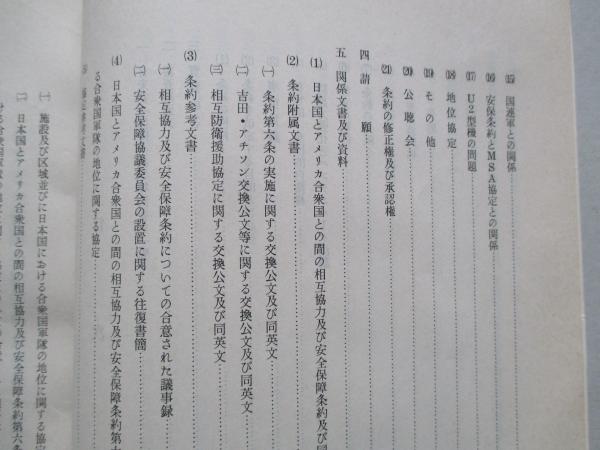 ⒂ 国連軍との関係
⒃ 安保条約とMSA協定との関係
⒄ U2型機の問題
⒅ 地位協定
⒆ その他
⒇ 公聴会
(21) 条約の修正権及び承認権
四 請願
五 関係文書及び資料
⑴ 日本国とアメリカ合衆国との間の相互協力及び安全保障条約及び同
⑵ 条約附属文書
㈠ 条約第六条の実施に関する交換公文及び同英文
㈡ 吉田・アチソン交換公文等に関する交換公文及び同英文
㈢ 相互防衛援助協定に関する交換公文及び同英文
⑶ 条約参考文書
㈠ 相互協力及び安全保障条約についての合意された議事録
㈡ 安全保障協議委員会の設置に関する往復書簡
⑷ 日本国とアメリカ合衆国との間の相互協力及び安全保障条約第六
る合衆国軍隊の地位に関する協定
㈠ 施設及び区域並びに日本国における合衆国軍隊の地位に関する協定
㈡ 日本国とアメリカ合衆国との間の相互協力及び安全保障条約第六条